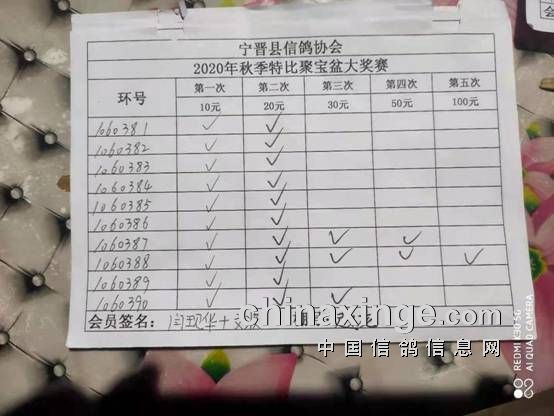 宁晋县信鸽协会
2020年秋季特比聚宝盆大奖赛
环号 第一次 第二次 第三次 第四次 第五次
10元 20元 30元 50元 100元
1060381 ✓ ✓
1060382 ✓ ✓
1060383 ✓ ✓
1060384 ✓ ✓
1060385 ✓ ✓
1060386 ✓ ✓
1060387 ✓ ✓ ✓ ✓
1060388 ✓ ✓ ✓ ✓ ✓
1060389 ✓ ✓
1060390 ✓ ✓ ✓
会员签名：
chinaxinge.com
中国信鸽信息网
REDMI K30 5G
AI QUAD CAMERA